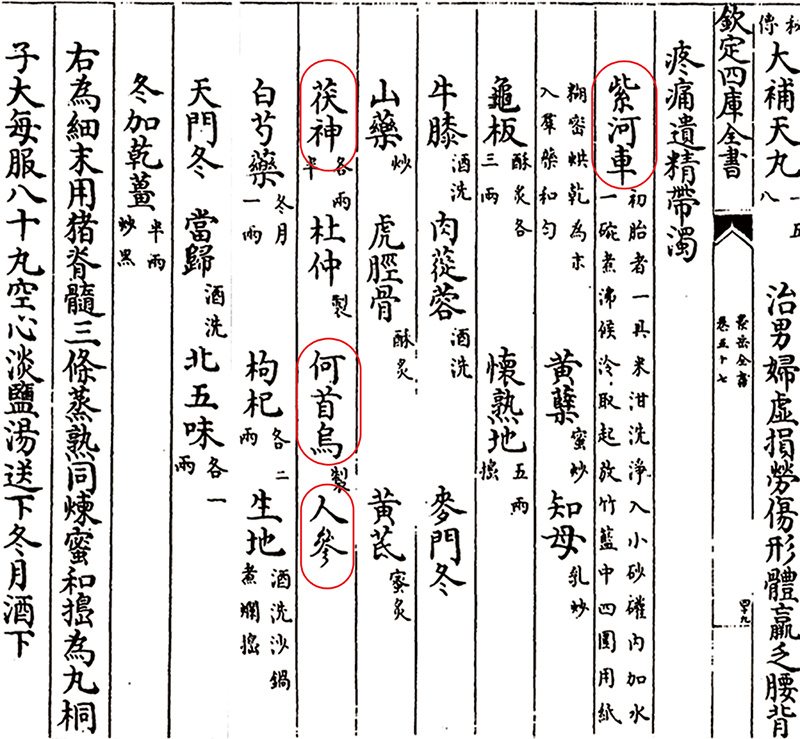 秘傳大補天丸 一五八 治男婦虛損勞傷形體羸乏腰背
欽定四庫全書 景岳全書 卷五十七 四九
疼痛遺精帶濁
紫河車 初胎者一具米泔洗淨入小砂礶内加水一碗煮沸候冷取起放竹籃中四圍用紙
糊密烘乾為末入羣藥和勻 黃蘗蜜炒 知母乳炒
龜板酥炙各三兩 懷熟地五兩搗
牛膝酒洗 肉蓯蓉酒洗 麥門冬
山藥炒 虎脛骨酥炙 黃芪蜜炙
茯神各兩半 杜仲製 何首烏製 人參
白芍藥冬月一兩 枸杞各二兩 生地酒洗沙鍋煮爛搗
天門冬 當歸酒洗 北五味各一兩
冬加乾薑半兩炒黑
右為細末用猪脊髓三條蒸熟同煉蜜和搗為丸桐
子大每服八十丸空心淡鹽湯送下冬月酒下